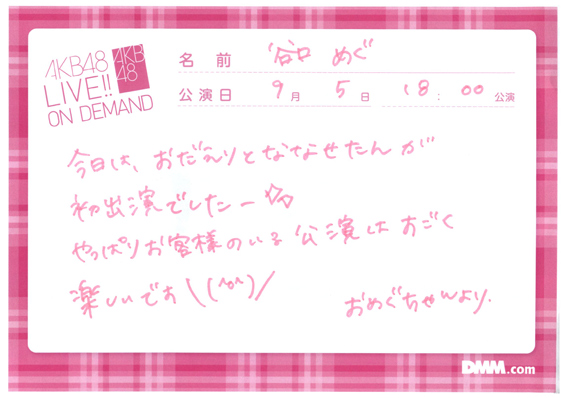 AKB48
LIVE!!
ON DEMAND
AKB
48
名前 谷口 めぐ
公演日 9月 5日 18:00 公演
今日は、おだえりとななせたんが
初出演でしたー☆☆
やっぱりお客様のいる公演はすごく
楽しいです\(^o^)/
おめぐちゃんより.
DMM.com